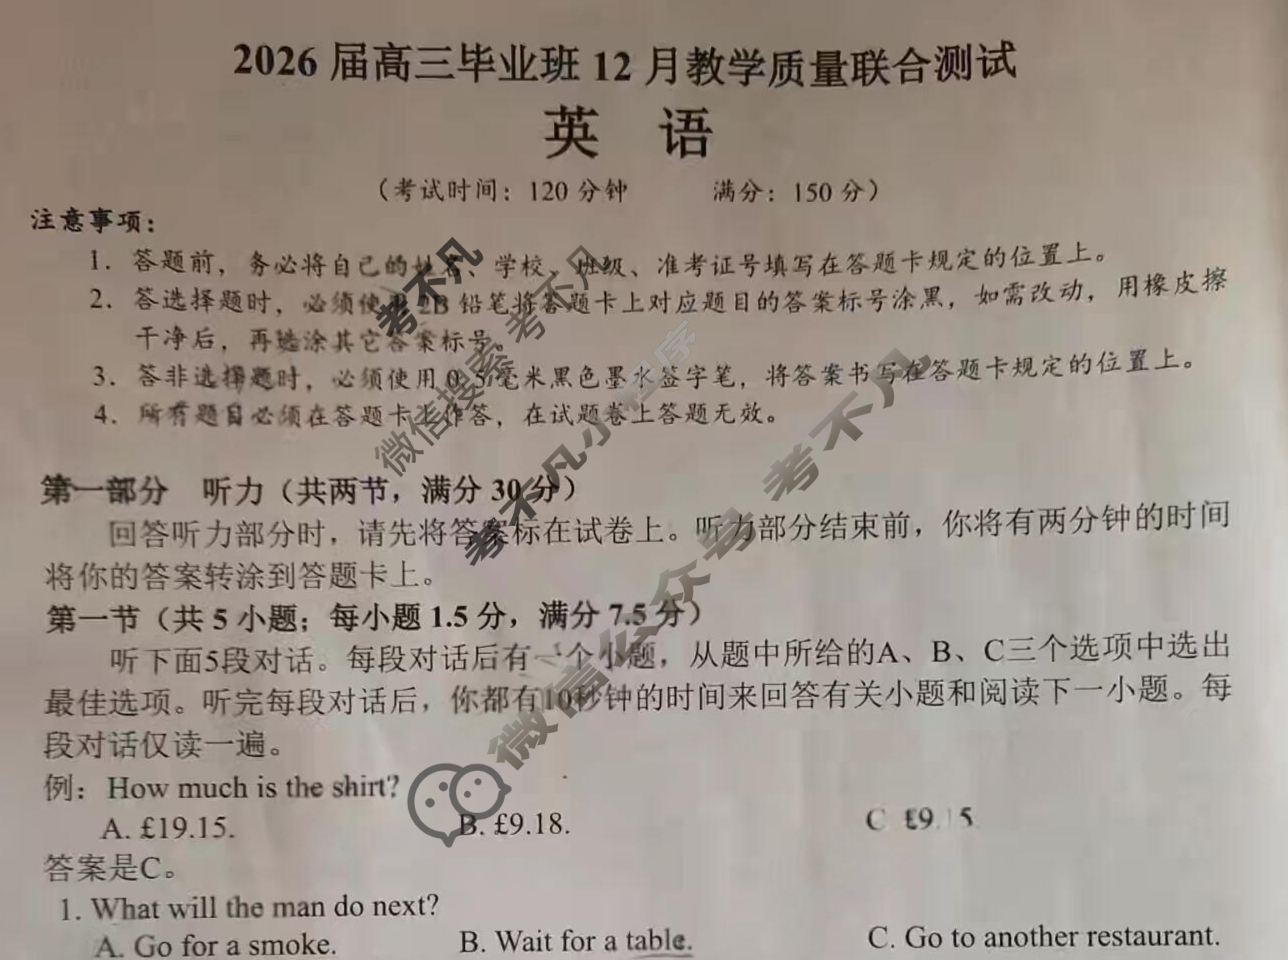 2026 届高三毕业班 12 月教学质量联合测试
英 语
（考试时间：120 分钟 满分：150 分）
注意事项：
1．答题前，务必将自己的姓名、学校、班级、准考证号填写在答题卡规定的位置上。
2．答选择题时，必须使用 2B 铅笔将答题卡上对应题目的答案标号涂黑，如需改动，用橡皮擦
干净后，再选涂其它答案标号。
3．答非选择题时，必须使用 0.5 毫米黑色墨水签字笔，将答案书写在答题卡规定的位置上。
4．所有题目必须在答题卡上作答，在试题卷上答题无效。
第一部分 听力（共两节，满分 30 分）
回答听力部分时，请先将答案标在试卷上。听力部分结束前，你将有两分钟的时间
将你的答案转涂到答题卡上。
第一节（共 5 小题；每小题 1.5 分，满分 7.5 分）
听下面5段对话。每段对话后有一个小题，从题中所给的A、B、C三个选项中选出
最佳选项。听完每段对话后，你都有10秒钟的时间来回答有关小题和阅读下一小题。每
段对话仅读一遍。
例：How much is the shirt?
A. £19.15. B. £9.18. C £9.15
答案是C。
1. What will the man do next?
A. Go for a smoke. B. Wait for a table. C. Go to another restaurant.
考不凡
微信搜索 考不凡
考不凡小程序
微信公众号 考不凡